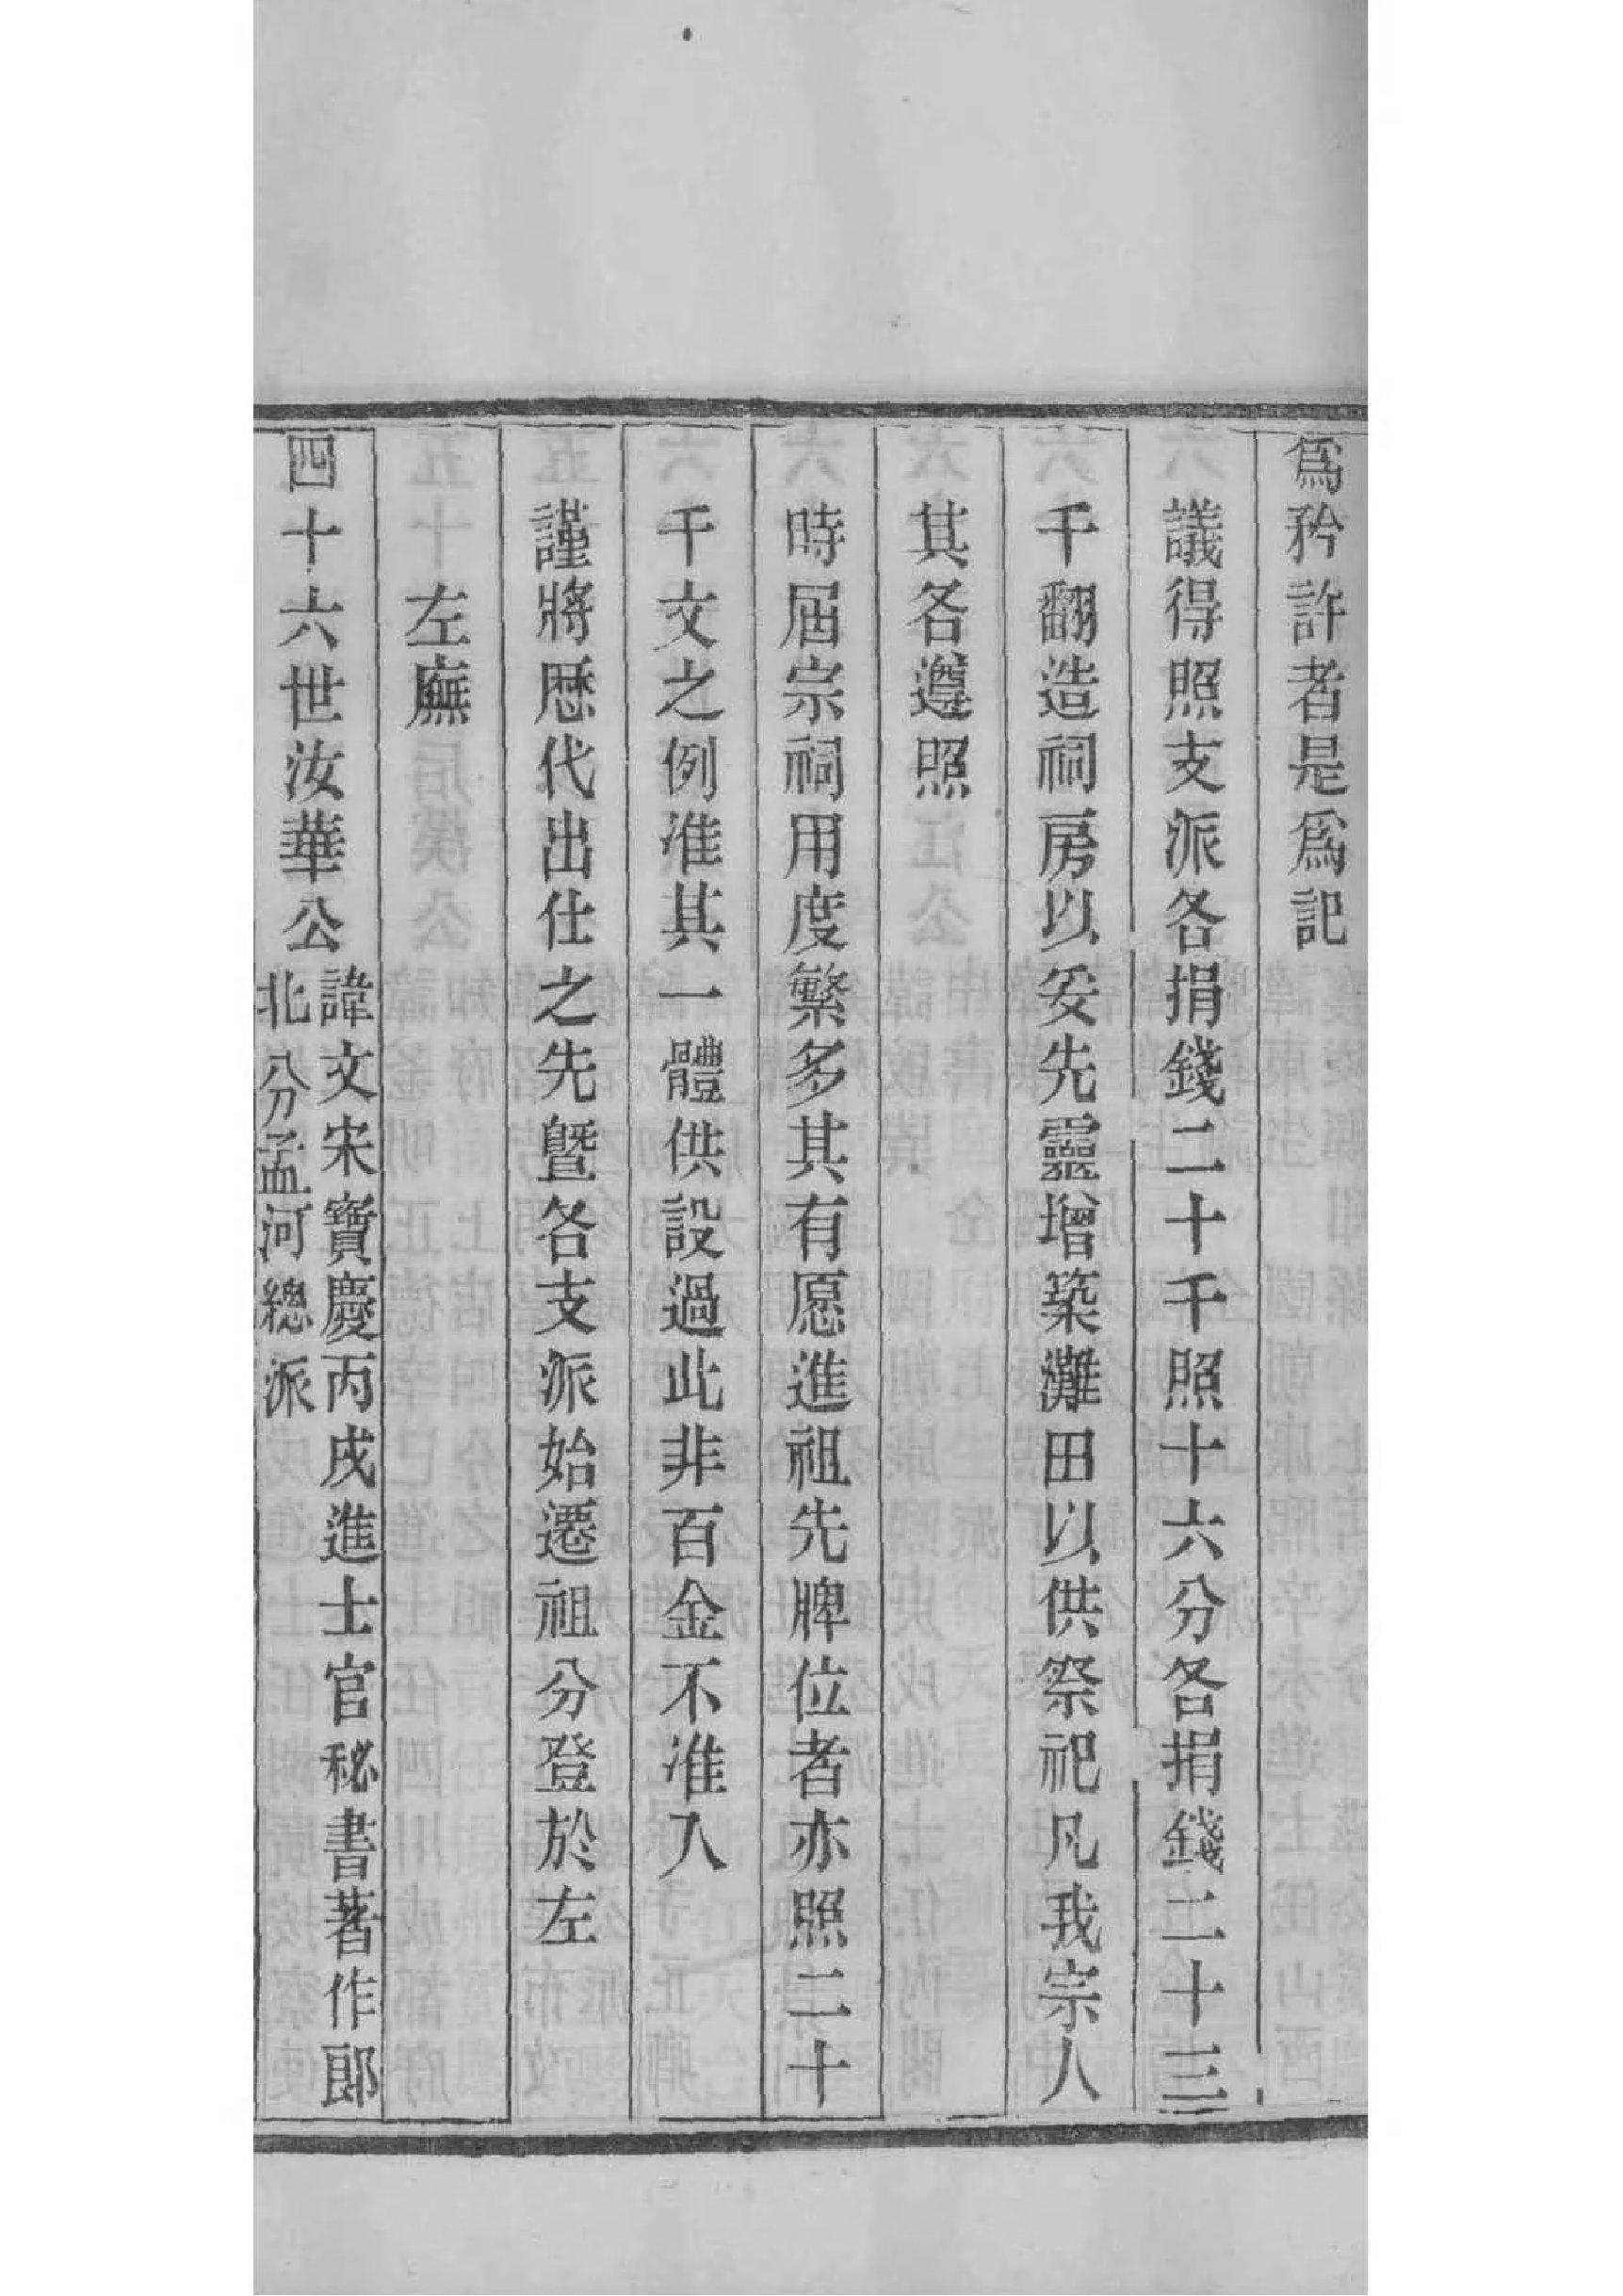 爲矜許者是爲記
議得照支派各捐錢二十千照十六分各捐錢二十三
千翻造祠房以妥先靈增築灘田以供祭祀凡我宗人
其各遵照
時屆宗祠用度繁多其有愿進祖先牌位者亦照二十
千文之例准其一體供設過此非百金不准入
謹將歷代出仕之先曁各支派始遷祖分登於左
左廡
四十六世汝華公
諱文宋寶慶丙戌進士官秘書著作郎
北分孟河總派